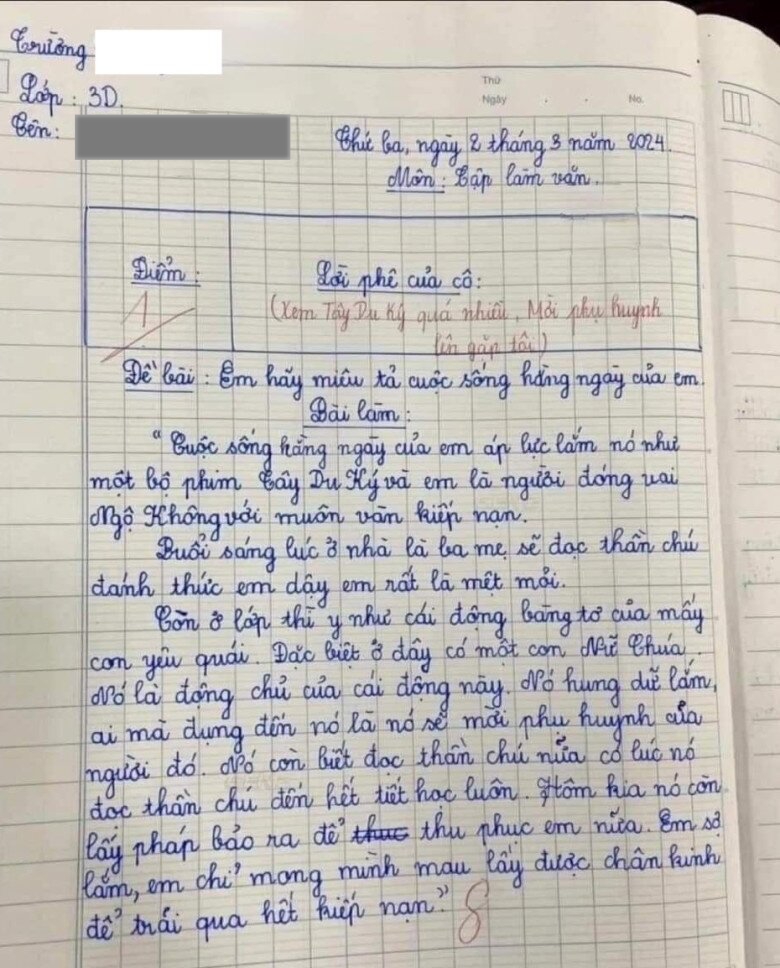 Trường
Lớp : 3D.
Tên :
Thứ
Ngày . . No.
Thứ ba, ngày 2 tháng 3 năm 2024.
Môn : Tập làm văn.
Điểm :
1
Lời phê của cô :
(Xem Tây Du Ký quá nhiều, Mời phụ huynh
lên gặp tôi)
Đề bài : Em hãy miêu tả cuộc sống hằng ngày của em.
Bài làm :
"Cuộc sống hằng ngày của em áp lực lắm nó như
một bộ phim Tây Du Ký và em là người đóng vai
Ngộ Không với muôn vàn kiếp nạn.
Buổi sáng lúc ở nhà là ba mẹ sẽ đọc thần chú
đánh thức em dậy em rất là mệt mỏi.
Còn ở lớp thì y như cái động bàng tơ của mấy
con yêu quái. Đặc biệt ở đây có một con Nữ Chúa.
Nó là động chủ của cái động này. Nó hung dữ lắm,
ai mà đụng đến nó là nó sẽ mời phụ huynh của
người đó. Nó còn biết đọc thần chú nữa có lúc nó
đọc thần chú đến hết tiết học luôn. Hôm kia nó còn
lấy pháp bảo ra để thuc thu phục em nữa. Em sợ
lắm, em chỉ mong mình mau lấy được chân kinh
để trải qua hết kiếp nạn."